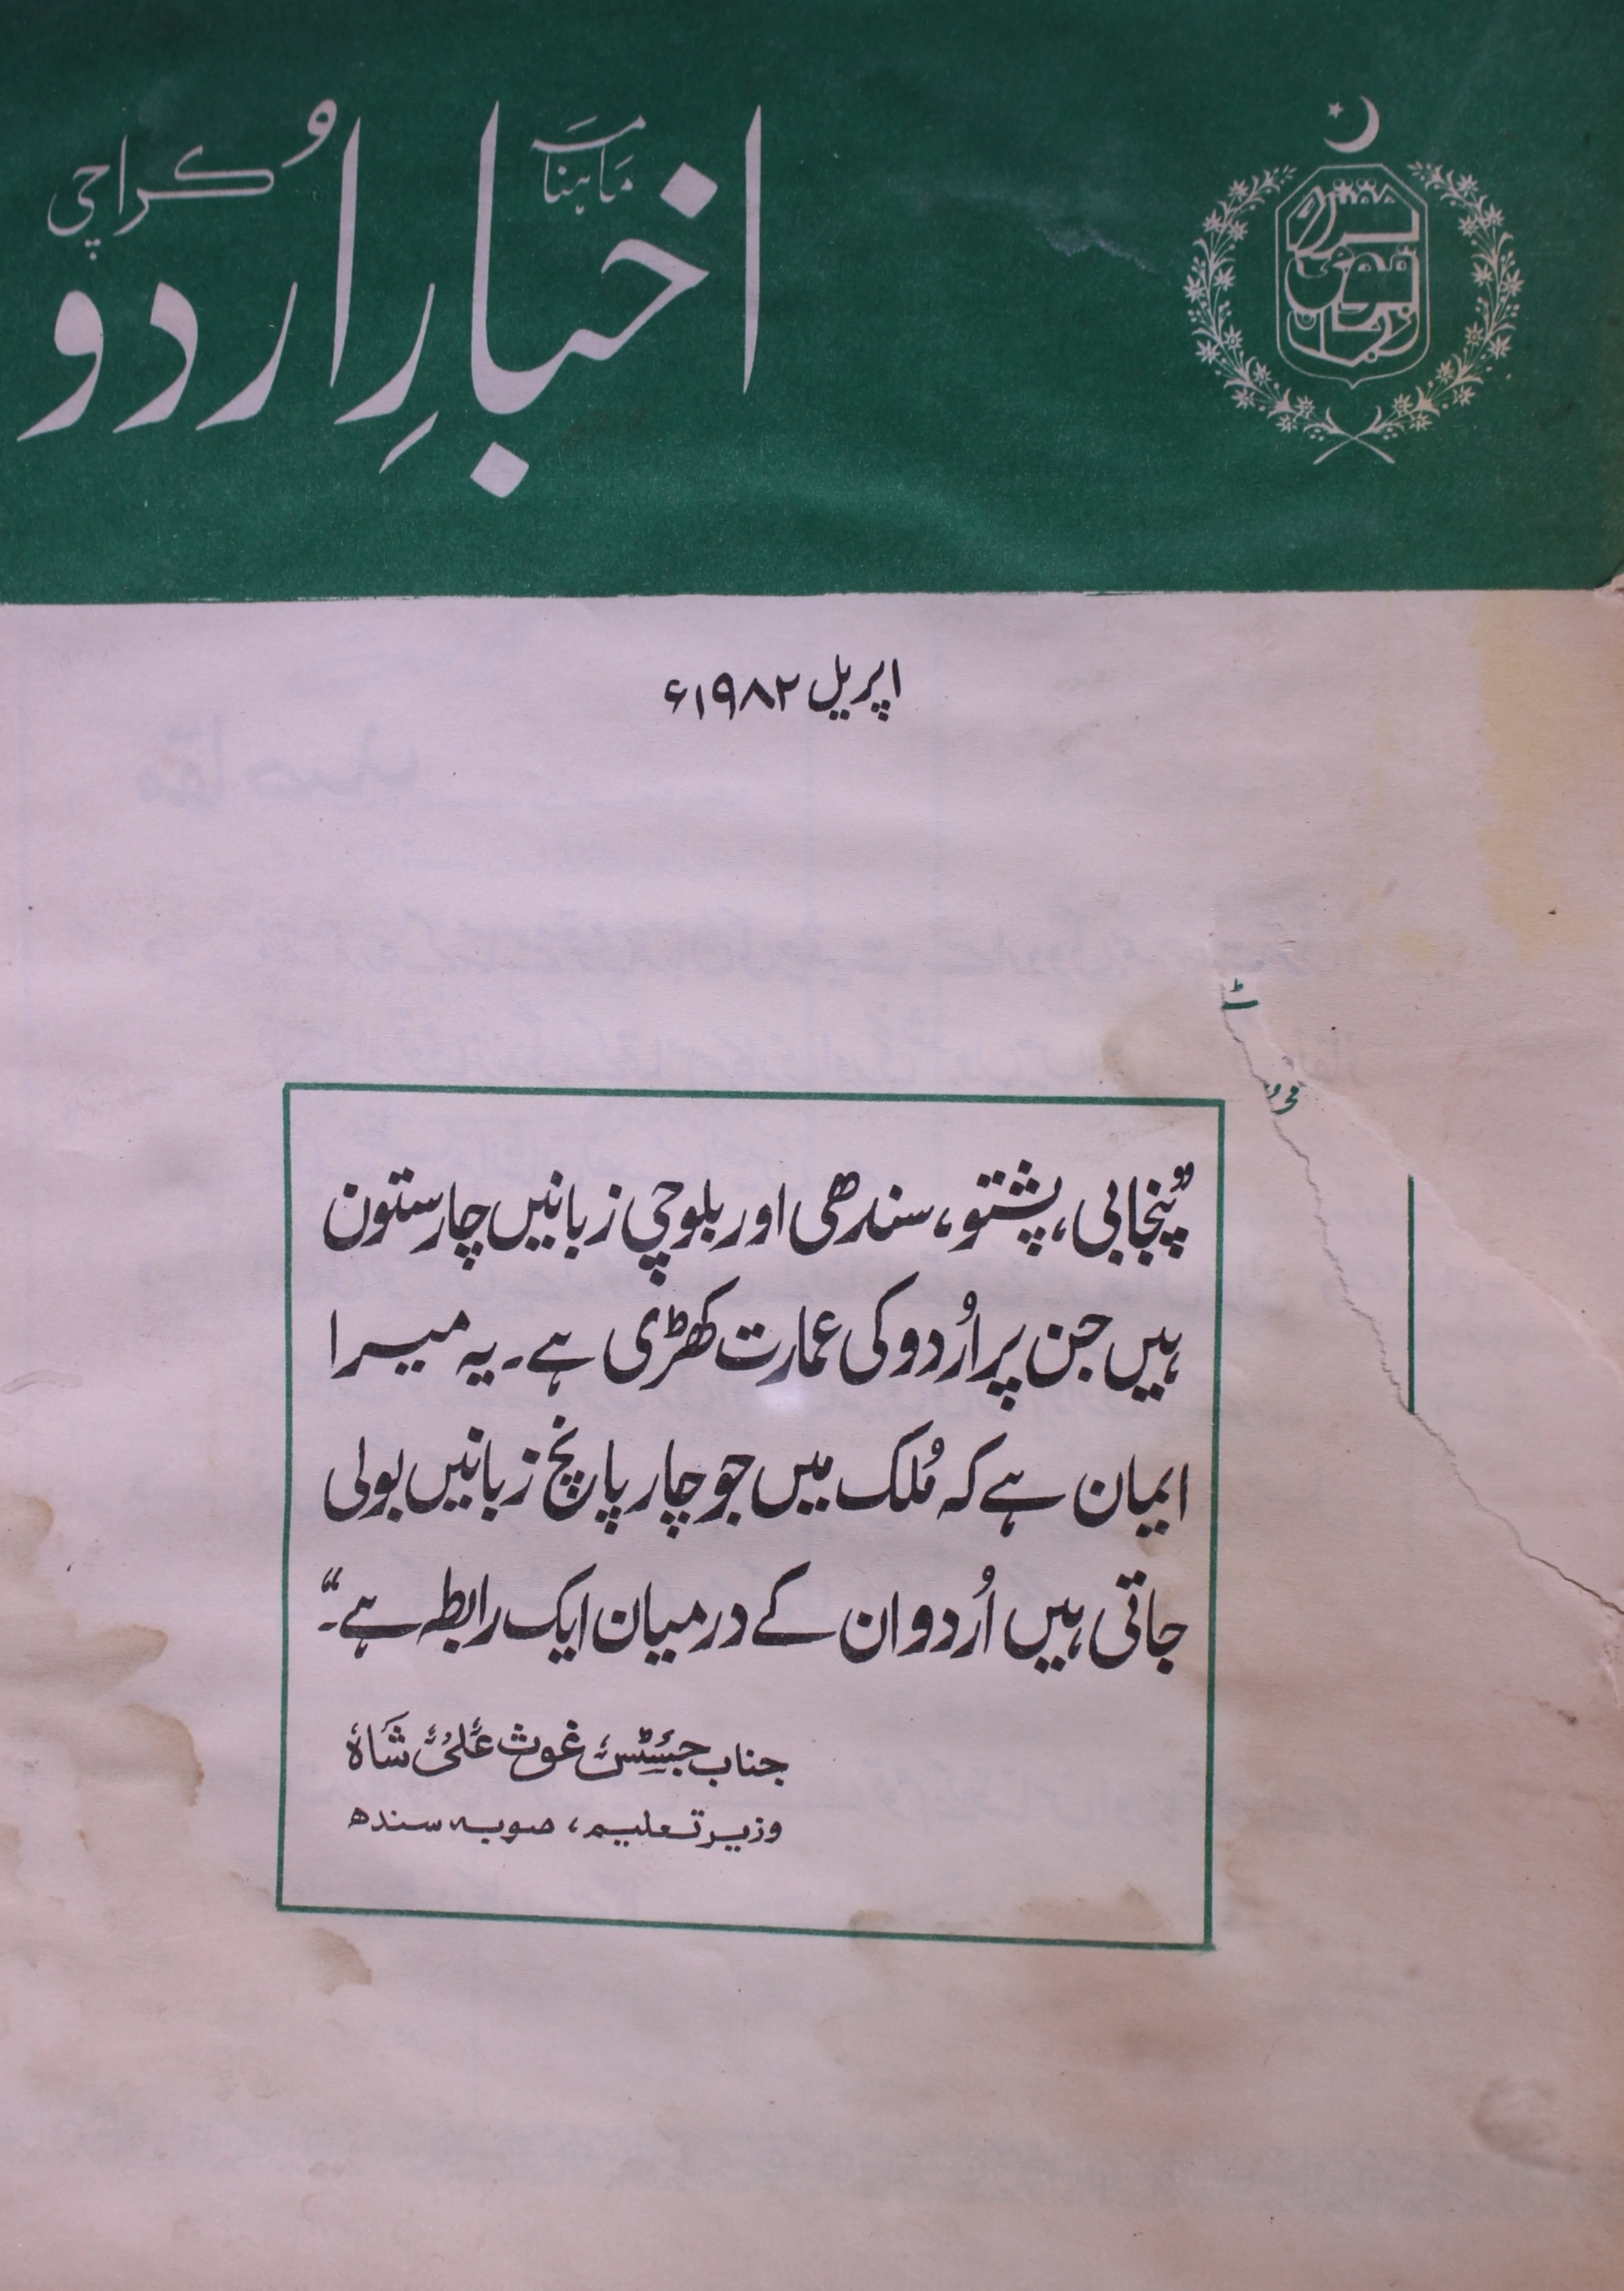 ماہنامہ
اخبارِ اُردو
کراچی
مقتدرہ قومی زبان
اپریل ۱۹۸۲ء
”پنجابی، پشتو، سندھی اور بلوچی زبانیں چار ستون
ہیں جن پر اُردو کی عمارت کھڑی ہے۔ یہ میرا
ایمان ہے کہ مُلک میں جو چار پانچ زبانیں بولی
جاتی ہیں اُردو ان کے درمیان ایک رابطہ ہے۔“
جناب جسٹس غوث علی شاہ
وزیر تعلیم، صوبہ سندھ